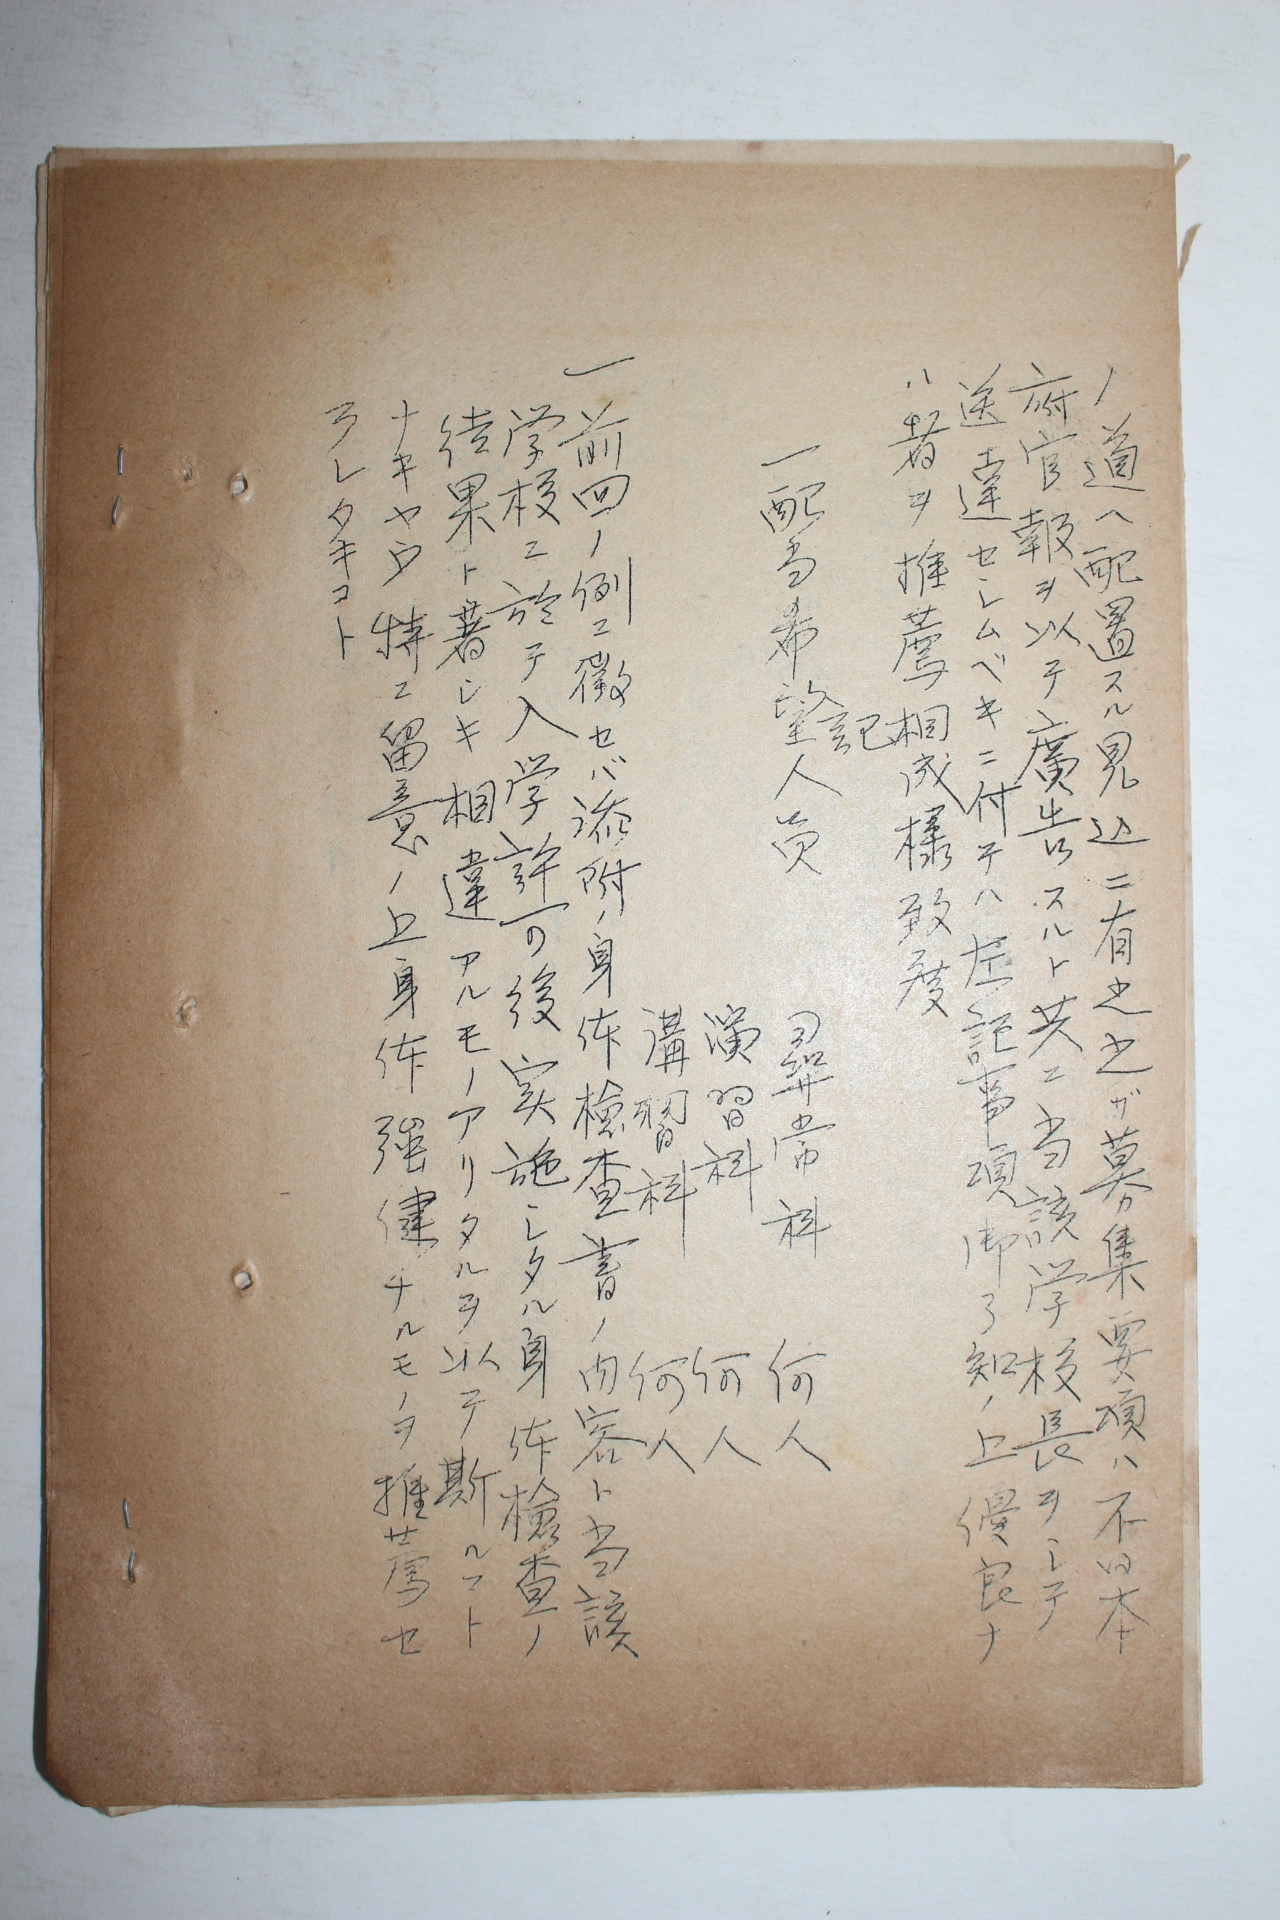 ノ道ヘ配置スル見込ニ有之之ガ募集要項ハ不日本
府官報ヲ以テ廣告スルト共ニ当該学校長ヲシテ
送達セシムベキニ付テハ左記事項御了知ノ上優良ナ
ル者ヲ推薦相成様致度
記
一配当希望人員
尋常科 何人
演習科 何人
講習科 何人
一前回ノ例ニ徴セバ添附ノ身体検査書ノ内容ト当該
学校ニ於テ入学許可後実施シタル身体檢查ノ
結果ト著シキ相違アルモノアリタルヲ以テ斯ルコト
ナキヤウ特ニ留意ノ上身体强健ナルモノヲ推薦セ
ラレタキコト